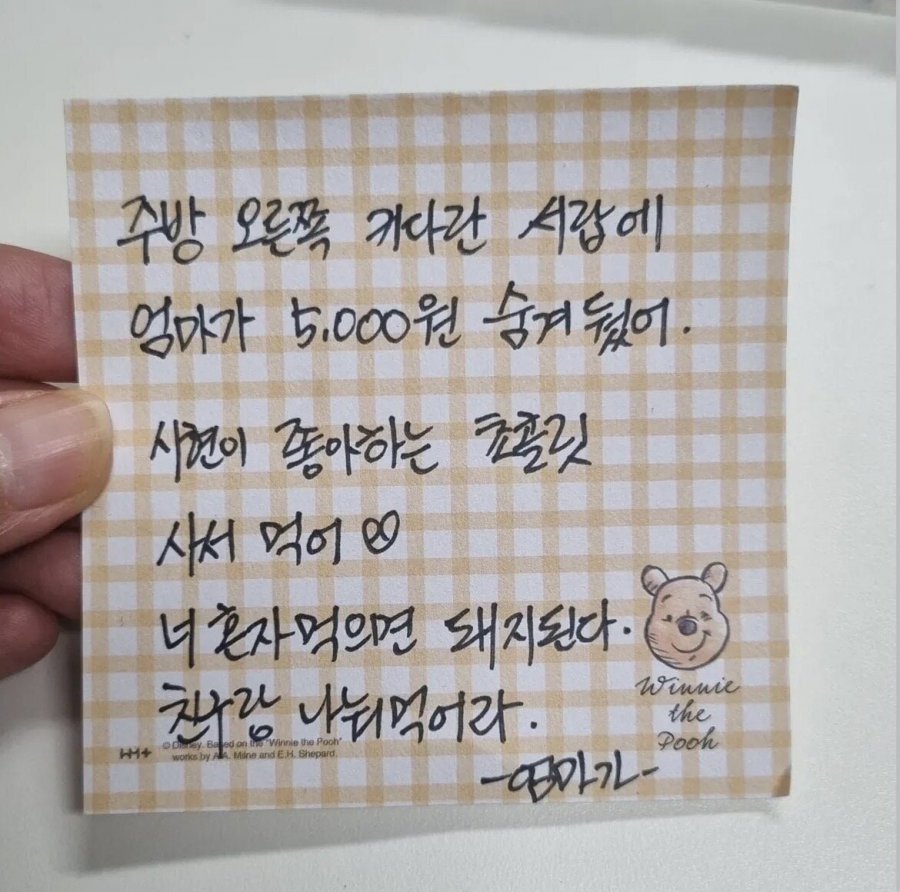 주방 오른쪽 커다란 서랍에
엄마가 5.000원 숨겨뒀어.
시현이 좋아하는 쵸콜릿
사서 먹어♡
너 혼자먹으면 돼지된다.
친구랑 나눠먹어라.
-엄마가-
Winnie
the
Pooh
© Disney. Based on the "Winnie the Pooh"
works by A.A. Milne and E.H. Shepard.